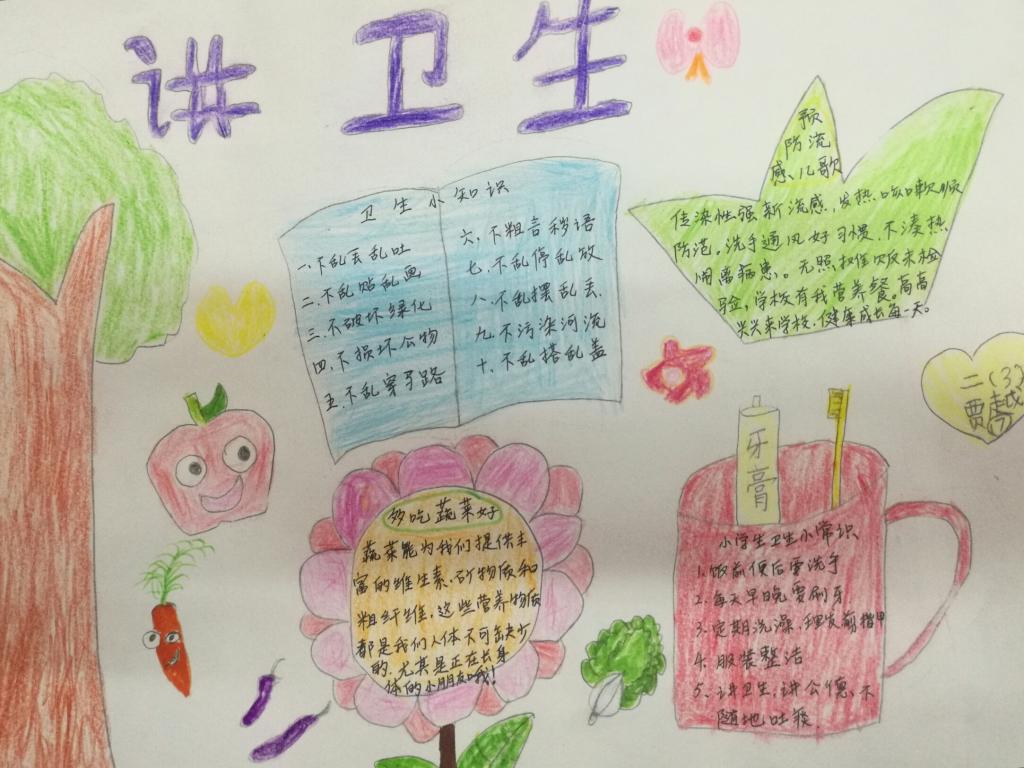 讲卫生
卫生小知识
一、不乱丢乱吐
二、不乱贴乱画
三、不破坏绿化
四、不损坏公物
五、不乱穿马路
六、不粗言秽语
七、不乱停乱放
八、不乱摆乱丢
九、不污染河流
十、不乱搭乱盖
预
防流
感儿歌
传染性强新流感，发热咳嗽顺
防范。洗手通风好习惯，不凑热
闹离病患。无照摊饭未检
验，学校有我营养餐。高高
兴兴来学校，健康成长每一天。
二(3)
贾越
多吃蔬菜好
蔬菜能为我们提供丰
富的维生素、矿物质和
粗纤维，这些营养物质
都是我们人体不可缺少
的，尤其是正在长身
体的小朋友哦！
牙膏
小学生卫生小常识
1.饭前便后要洗手
2.每天早晚要刷牙
3.定期洗澡，理发剪指甲
4.服装整洁
5.讲卫生，讲公德，不
随地吐痰